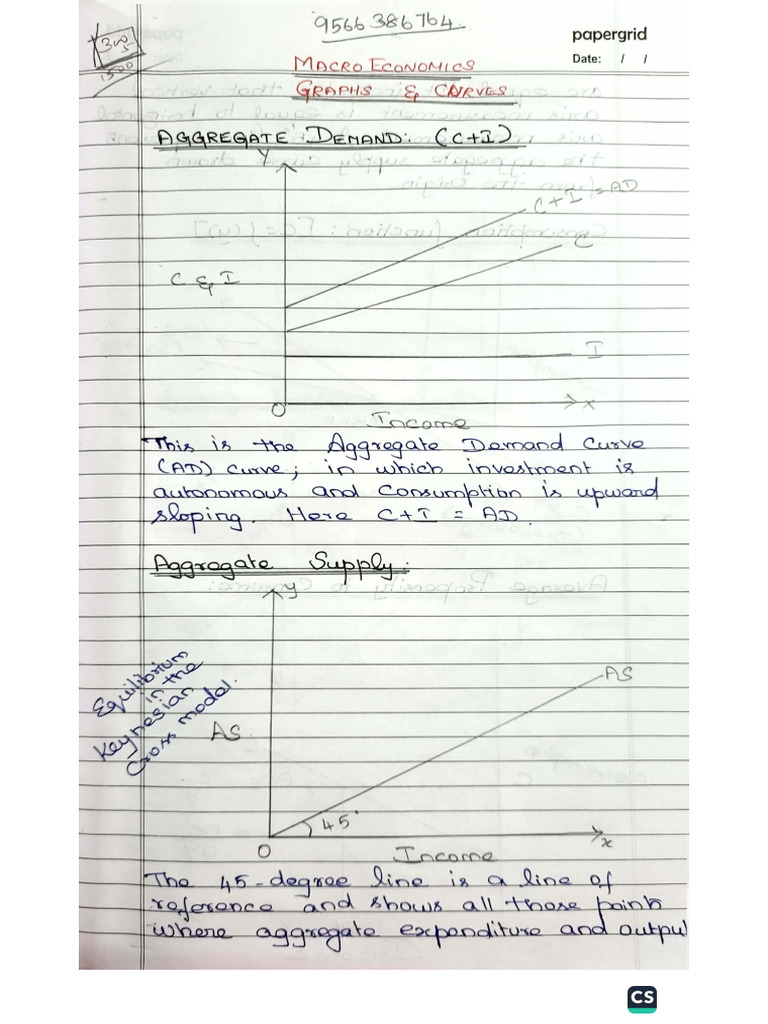 9566386764.
papergrid
Date: / /
300
5
1500
MACRO ECONOMICS
GRAPHS & CURVES
AGGREGATE DEMAND: (C+I)
Y
C+I = AD
C
C & I
I
O
x
Income
This is the Aggregate Demand Curve
(AD) curve; in which investment is
autonomous and Consumption is upward
sloping. Here C+I = AD.
Aggregate Supply:
y
Equilibrium
in the
Keynesian
Cross model.
AS
AS
45°
O
x
Income
The 45-degree line is a line of
reference and shows all those points
where aggregate expenditure and output
CS